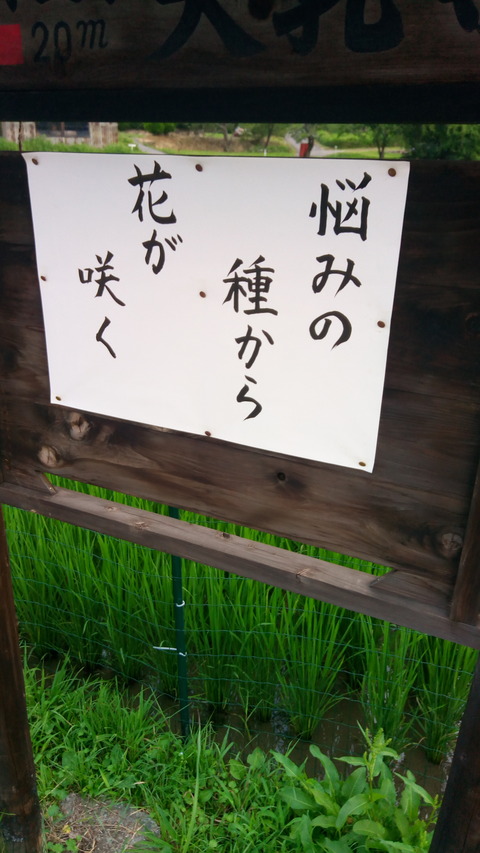 20m
悩みの
種から
花が
咲く